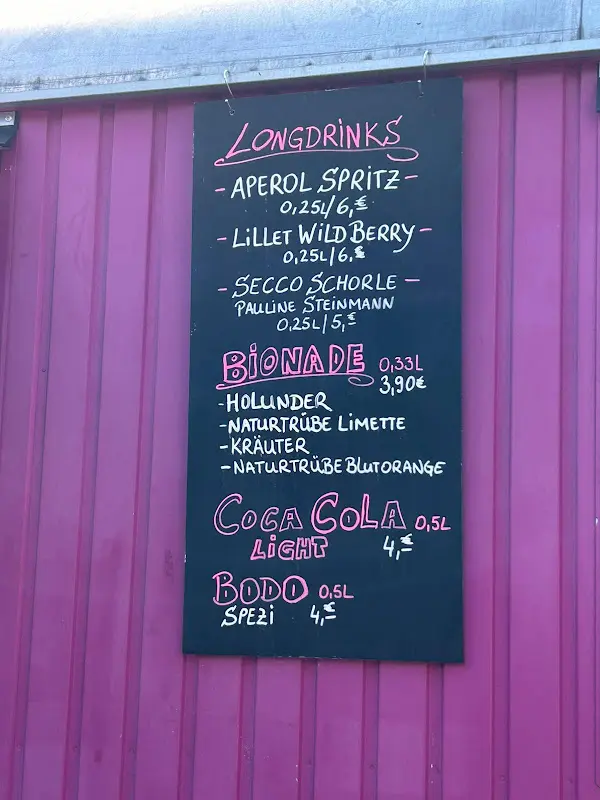 LONGDRINKS
- APEROL SPRITZ -
0,25L/6,-€
- LiLLET WiLD BERRY -
0,25L/6,-€
- SECCO SCHORLE -
PAULINE STEINMANN
0,25L/5,-€
BiONADE 0,33L
3,90€
-HOLUNDER
-NATURTRÜBE LiMETTE
-KRÄUTER
-NATURTRÜBE BLUTORANGE
COCA COLA 0,5L
LiGHT 4,-€
BODO 0,5L
SPEZi 4,-€